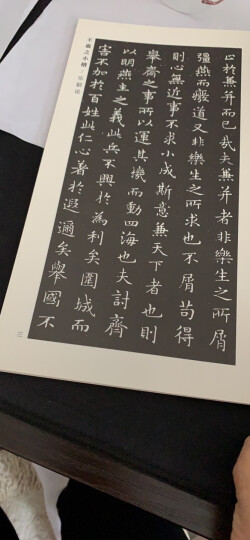 止於兼并而已哉夫兼并者非樂生之所屑
彊燕而廢道又非樂生之所求也不屑苟得
則心無近事不求小成斯意兼天下者也則
舉齊之事所以運其機而動四海也夫討齊
以明燕主之義此兵不興於為利矣圍城而
害不加於百姓此仁心著於遐邇矣舉國不
王羲之小楷 / 樂毅論
三